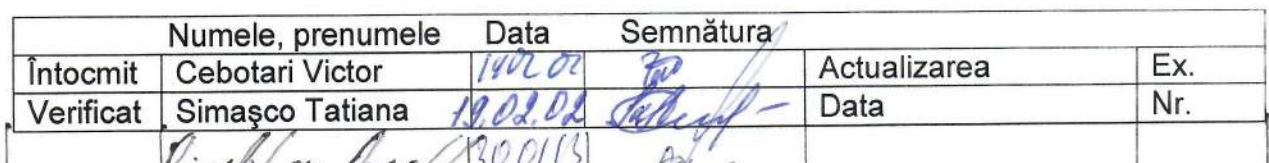 Numele, prenumele Data Semnătura
Întocmit Cebotari Victor Actualizarea Ex.
Verificat Simaşco Tatiana 19.02.02 Data Nr.